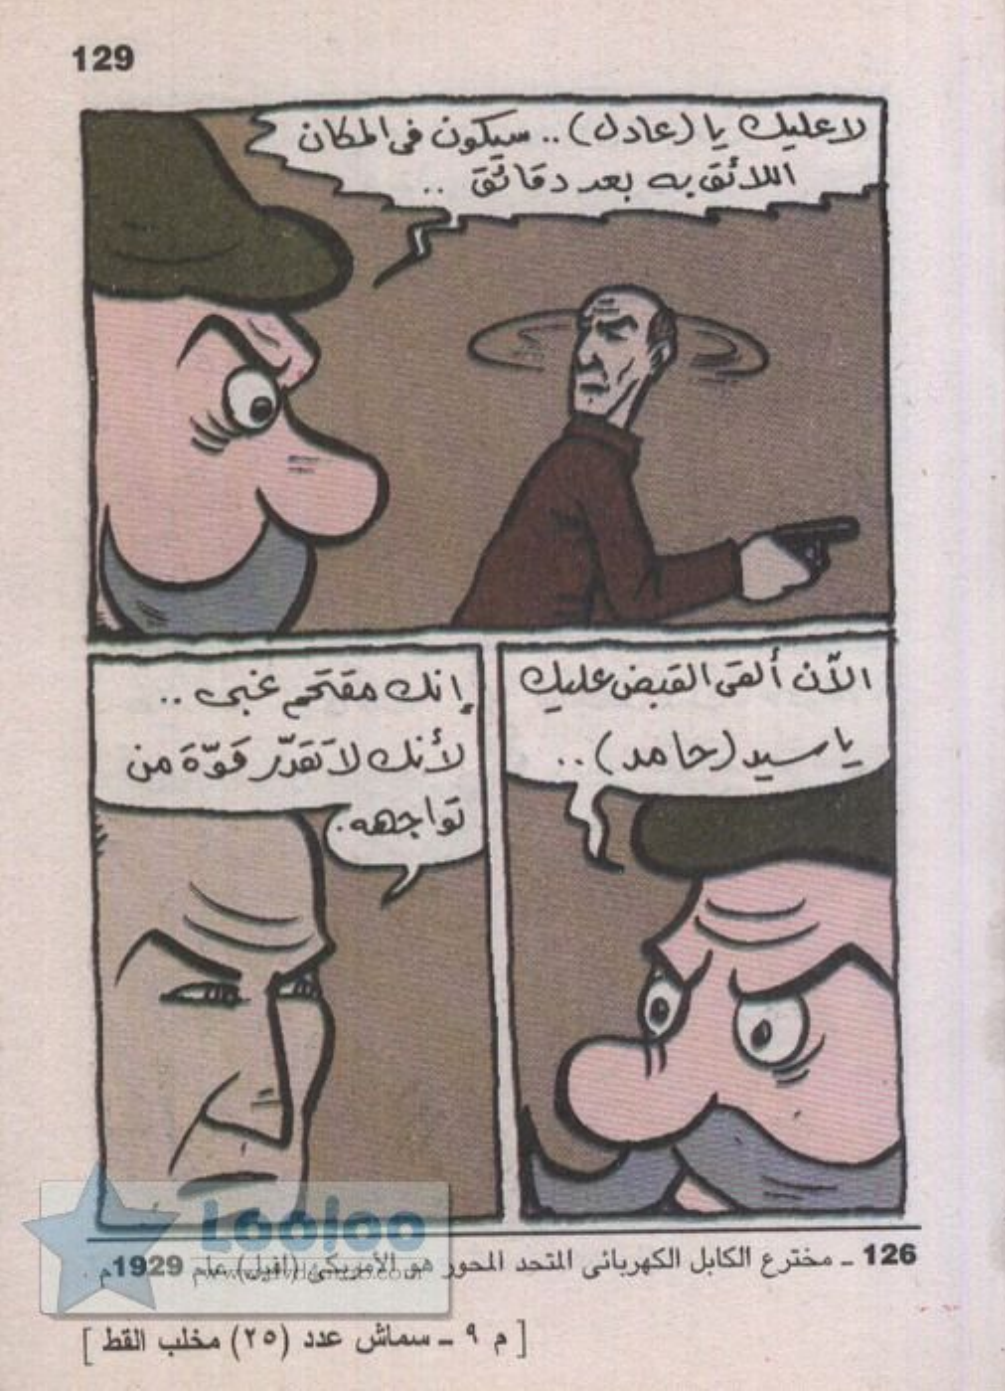 129
لا عليك يا (عادل) .. سيكون في المكان
اللائق به بعد دقائق ..
الآن ألقى القبض عليك
يا سيد (حامد) ..
إنك مقتحم غبى ..
لأنك لا تقدّر قوّة من
تواجهه.
126 ـ مخترع الكابل الكهربائى المتحد المحور هو الأمريكى (افيل) عام 1929م .
Looloo
[ م ٩ ـ سماش عدد (٢٥) مخلب القط ]